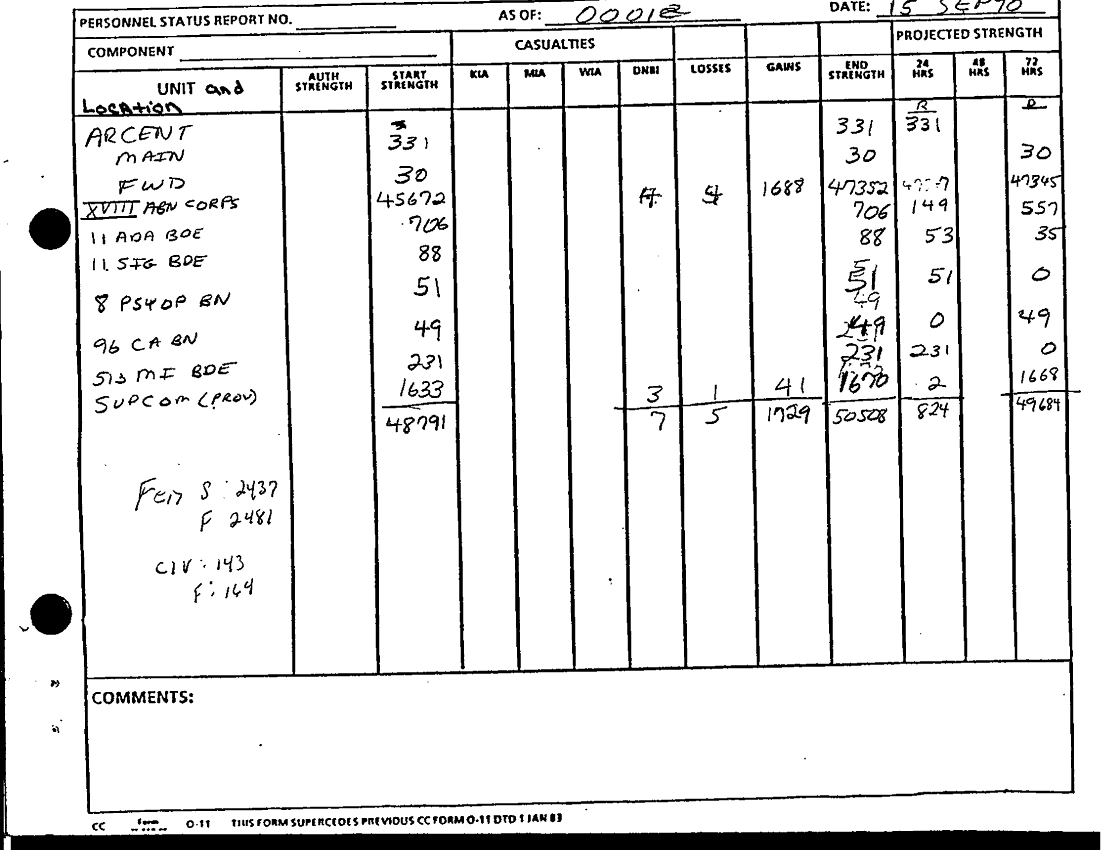 PERSONNEL STATUS REPORT NO. AS OF: 0001 DATE: 15 SEP 90
COMPONENT CASUALTIES PROJECTED STRENGTH
UNIT and Location AUTH STRENGTH START STRENGTH KIA MIA WIA DNBI LOSSES GAINS END STRENGTH 24 HRS 48 HRS 72 HRS
ARCENT
MAIN 331 331 331
FWD 30 30 30
XVIII ABN CORPS 45672 4 4 1688 47352 47345
11 ADA BDE 706 706 149 557
11 SIG BDE 88 88 53 35
8 PSYOP BN 51 51 51 0
96 CA BN 49 49 0 49
513 MI BDE 231 231 231 0
SUPCOM (PROV) 1633 3 1 41 1670 2 1668
48791 7 5 1729 50508 824 49684
Fem S: 2437
F 2481
CIV: 143
F: 164
COMMENTS:
CC Form O-11 THIS FORM SUPERCEDES PREVIOUS CC FORM O-11 DTD 1 JAN 83